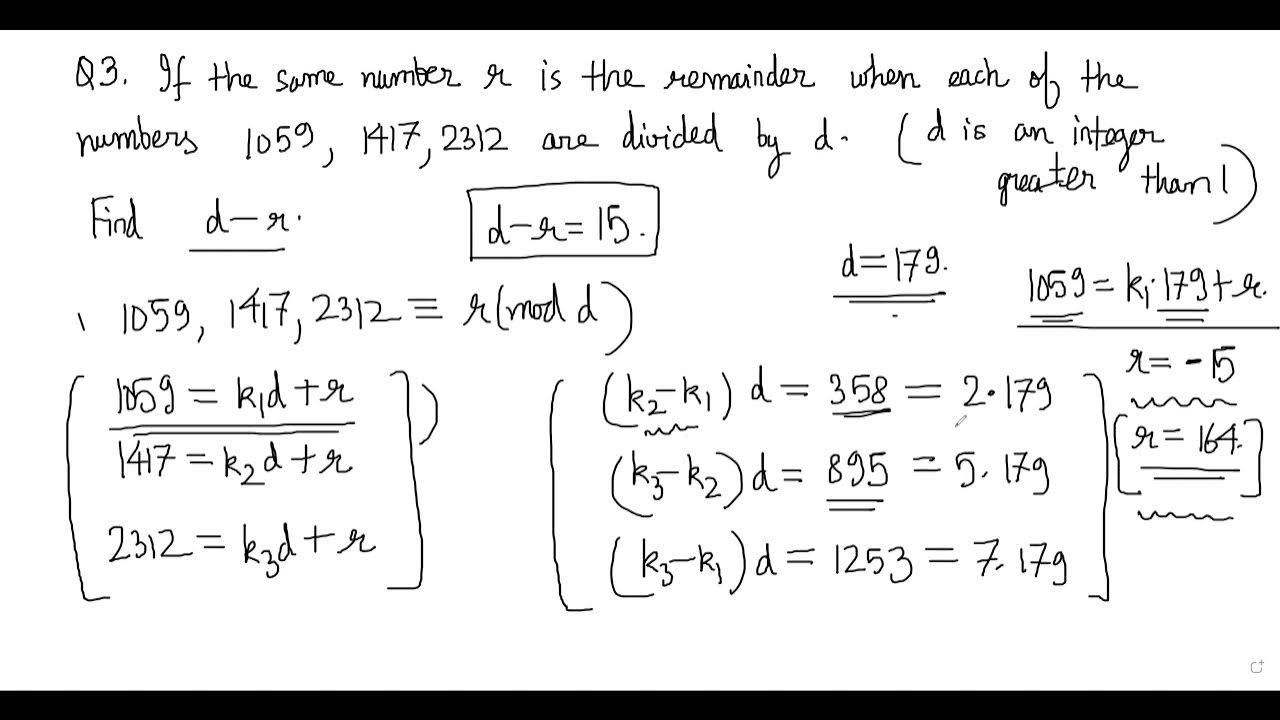 Q3. If the same number r is the remainder when each of the
numbers 1059, 1417, 2312 are divided by d. (d is an integer
greater than 1)
Find d-r.
d-r=15.
d=179.
1059 = k₁·179+r.
1059, 1417, 2312 ≡ r(mod d)
r= -15
r= 164.
1059 = k₁d+r
1417 = k₂d+r
2312 = k₃d+r
(k₂-k₁) d = 358 = 2·179
(k₃-k₂) d = 895 = 5.179
(k₃-k₁) d = 1253 = 7.179